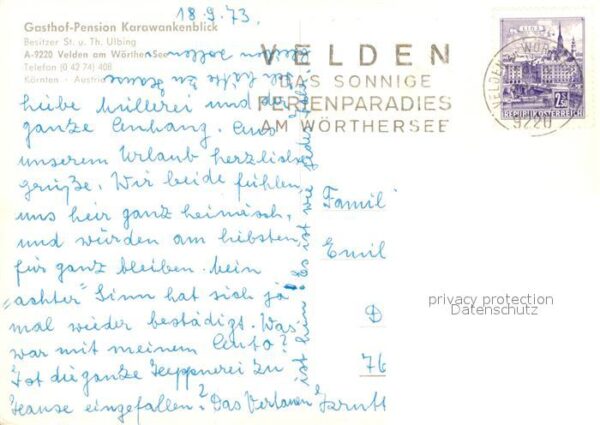 18.9.73.
Gasthof-Pension Karawankenblick
Besitzer St. u. Th. Ulbing
A-9220 Velden am Wörther-See
Telefon (0 42 74) 408
Kärnten - Austria
VELDEN
DAS SONNIGE
FERIENPARADIES
AM WÖRTHERSEE
VELDEN AM WÖRTH
9220
LINZ
2S
REPUBLIK ÖSTERREICH
Liebe Millerei und der
ganze Anhang. Aus
unserem Urlaub herzliche
grüße. Wir beide fühlen
uns heir ganz heimisch,
und würden am liebsten
für ganz bleiben. Mein
„achter" Sinn hat sich ja
mal wieder bestädigt. Was
war mit meinem Auto?
Ist die ganze Hepperei zu
Hause eingefallen? Das Vertrauen
ist hin! Es ist wie jedes
hätte zu Hause
Famil
Emil
D
76
privacy protection
Datenschutz